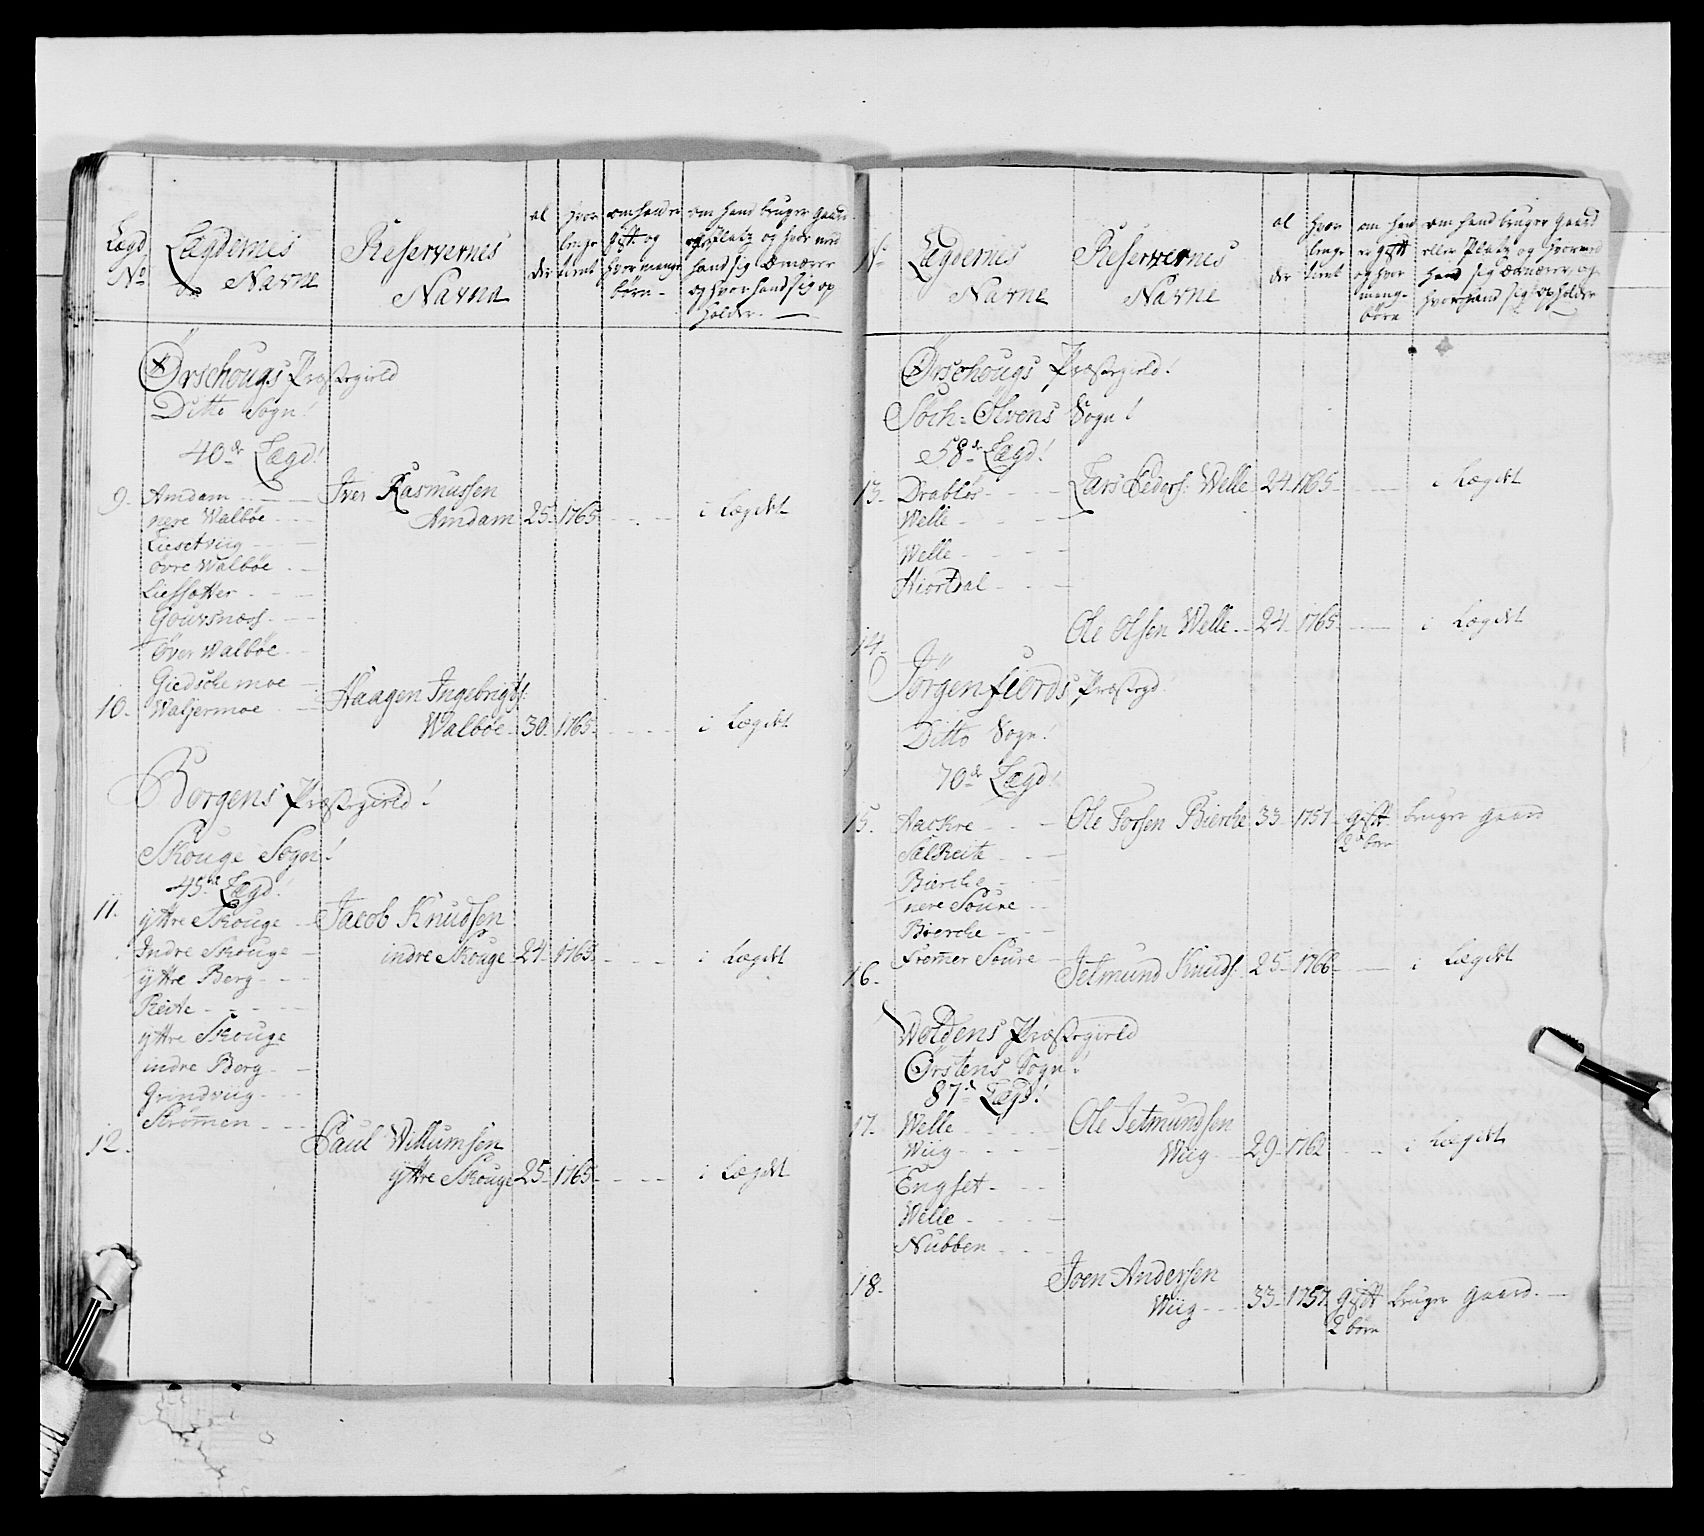 Lægd No
Lægdernes Navne
Reservernes Navne
al der
hvor lenge tient
om hand er gift og hvor mange børn
om hand bruger gaard eller Platz og hvor med hand sig ernærer og hvor hand sig op holder.
Ørschougs Præstegield
Ditto Sogn!
40de Lægd!
9. Amdam Iver Rasmussen
nere Walbøe Amdam 25 1765 i Lægdet
Liesetviig
øvre Walbøe
Liessætter
Gouvsnæss
Øver Walbøe
Giedschemoe Haagen Ingebrigts:
10. Waljermoe Walbøe 30 1765 i Lægdet
Borgens Præstegield!
Skouge Sogn!
45de Lægd!
11. ÿttre Skouge Jacob Knudsen
Indre Skouge indre Skouge 24 1765 i Lægdet
ÿttre Berg
Reite
ÿttre Skouge
indre Berg
Grindviig
Strømen
12. Paul Willumsen
ÿttre Skouge 25 1765 i Lægdet
No
Lægdernes Navne
Reservernes Navne
al der
hvor lenge tient
om hand er gift og hvor mang børn
om hand bruger gaard eller Platz og hvormed hand sig ernærer og hvor hand sig opholder
Ørschougs Præstegield!
Søch=Ølvens Sogn!
58de Lægd!
13. Drabløs Lars Peders: Welle 24 1765 i Lægdet
Welle
Welle
Hiortdal
14. Ole Olsen Welle 24 1765 i Lægdet
Jørgenfiords Præstegd
Ditto Sogn!
70de Lægd!
15. Aackre Ole Torsen Bierche 33 1757 gift 2 børn bruger gaard
SælReite
Bierche
nere Soure
Bierche
Fremer Soure
16. Jetmund Knuds: 25 1766 i Lægdet
Woldens Præstegield
Ørstens Sogn!
87de Lægd!
17. Welle Ole Jetmundsen
Wiig Wiig 29 1762 i Lægdet
Engset
Welle
Nubben
18. Iven Andersen
Wiig 33 1757 Gift 2 børn bruger Gaard.